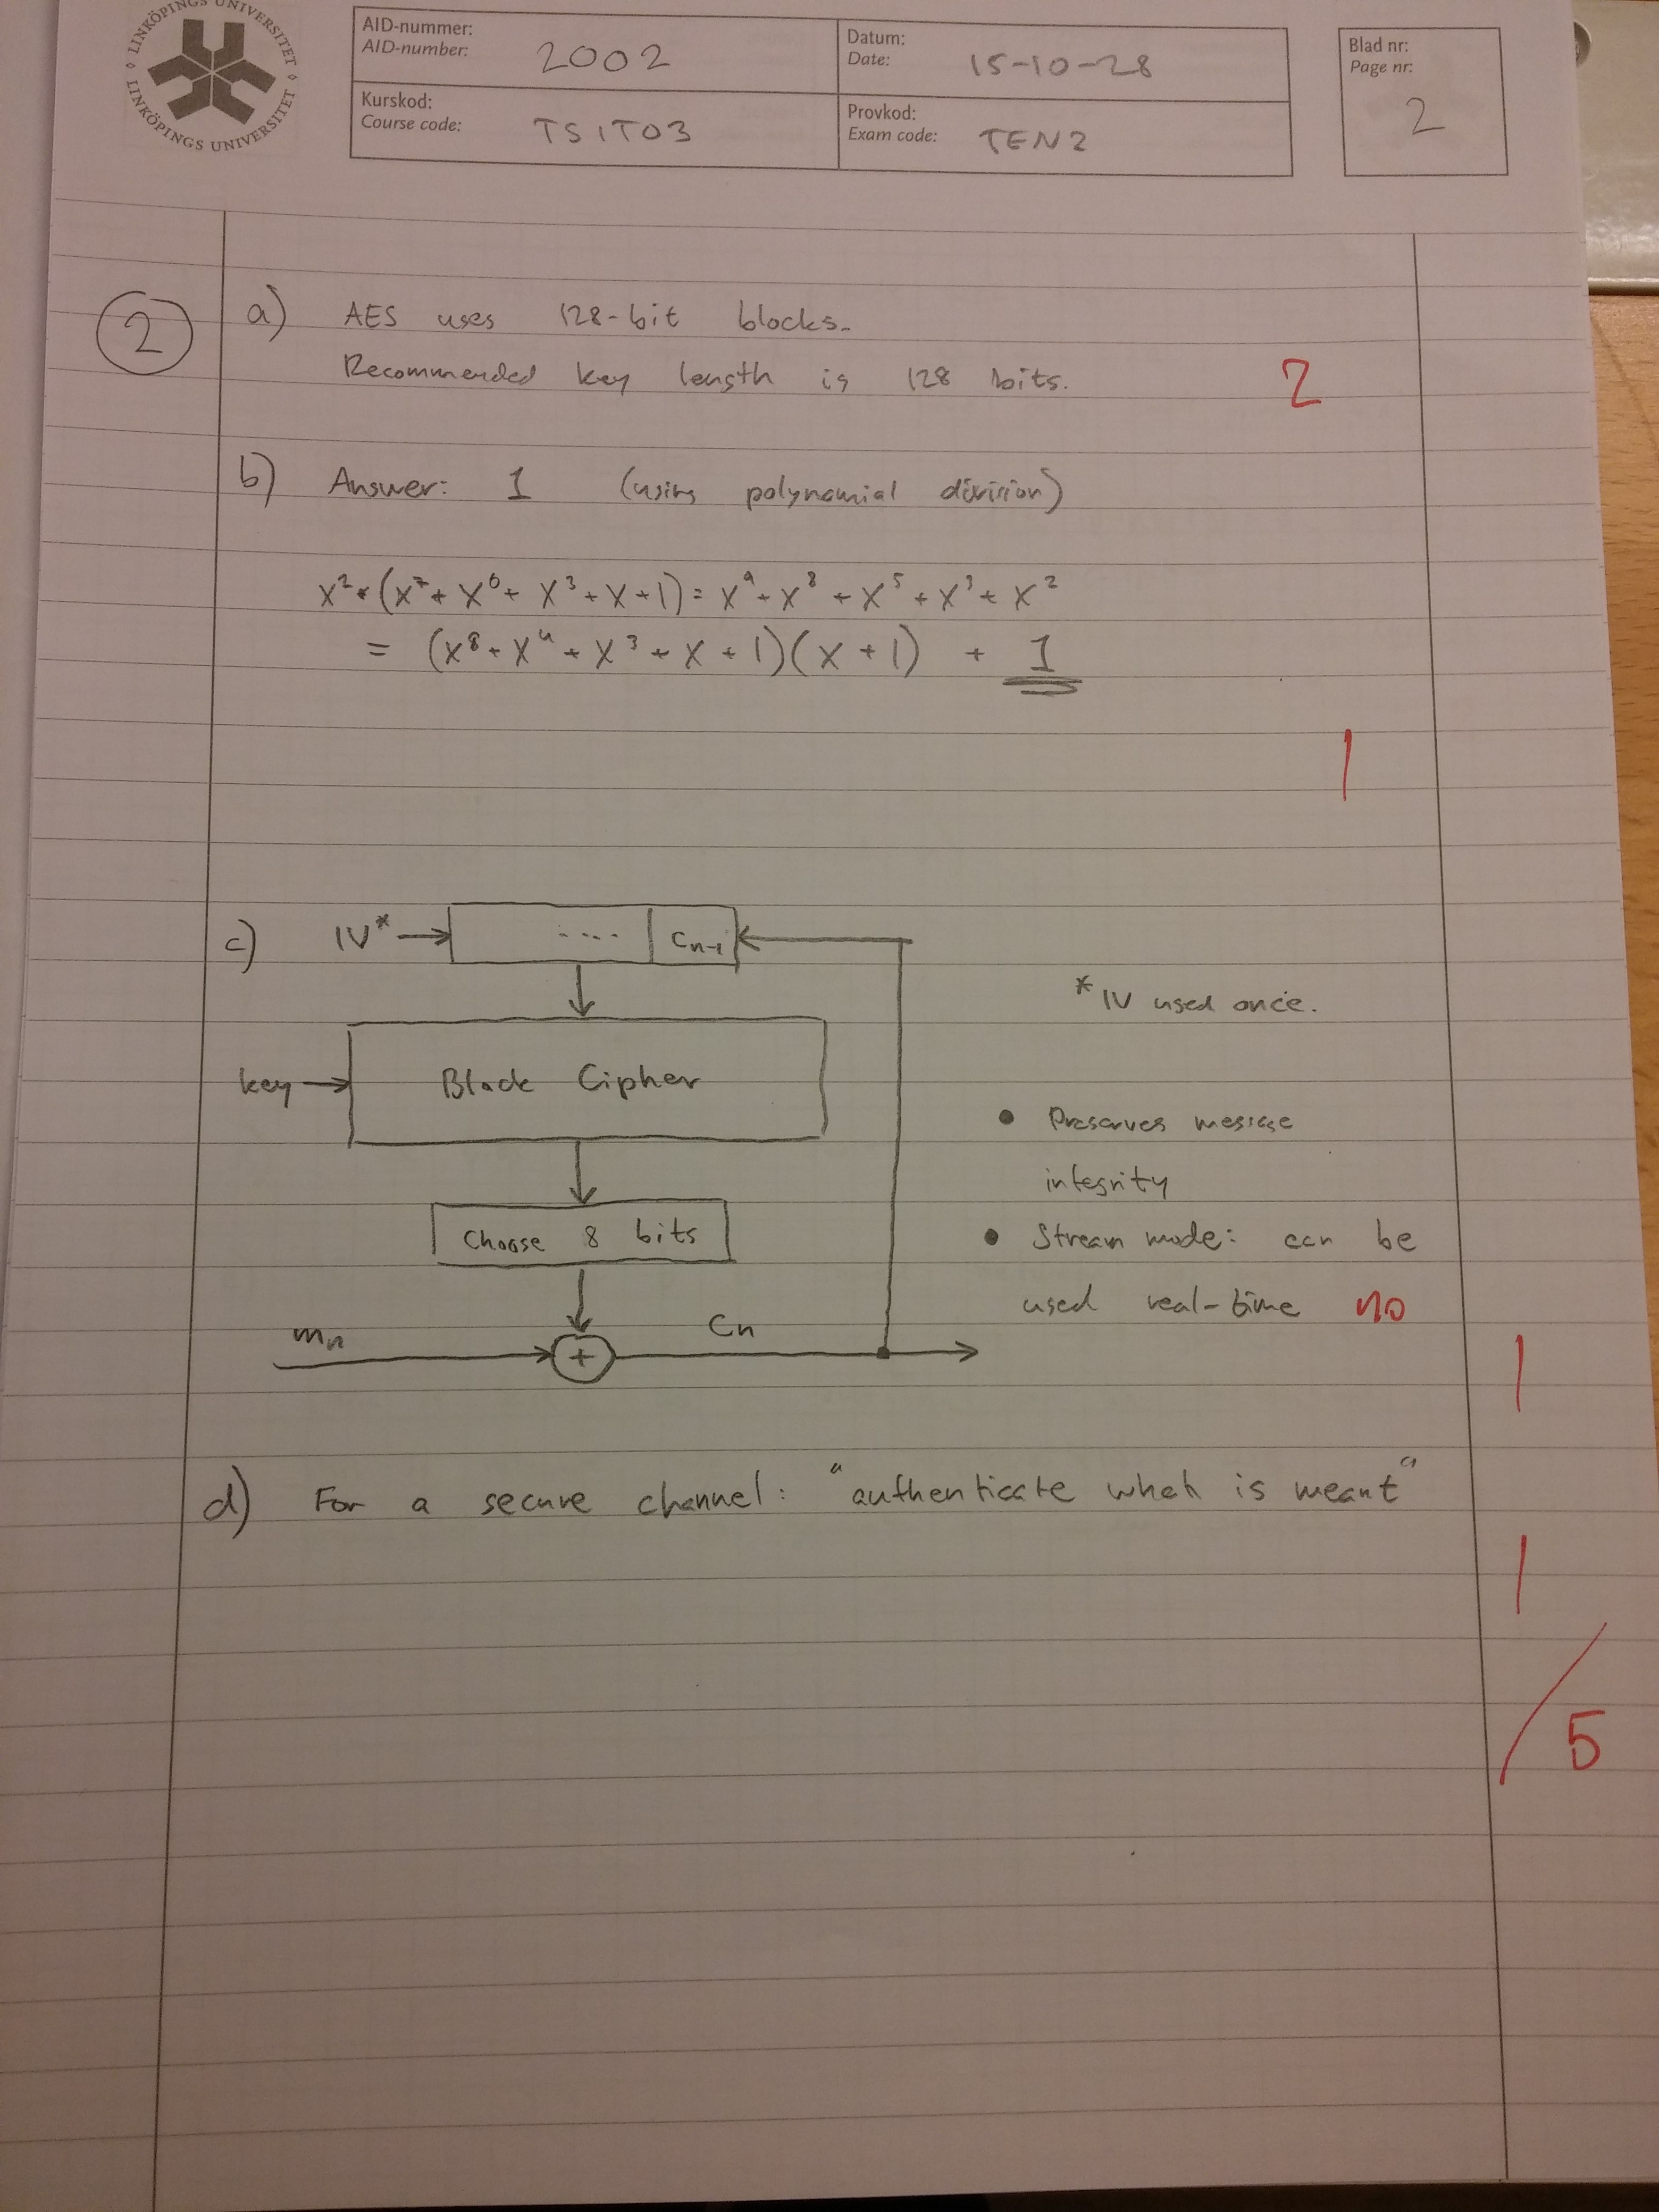 LINKÖPINGS UNIVERSITET
LINKÖPINGS UNIVERSITET
AID-nummer:
AID-number: 2002
Datum:
Date: 15-10-28
Blad nr:
Page nr:
2
Kurskod:
Course code: TSIT03
Provkod:
Exam code: TEN2
2 a) AES uses 128-bit blocks.
Recommended key length is 128 bits. 2
b) Answer: 1 (using polynomial division)
x²*(x⁷+x⁶+x³+x+1)=x⁹+x⁸+x⁵+x³+x²
= (x⁸+x⁴+x³+x+1)(x+1) + 1
1
c) IV* .... Cn-1
*IV used once.
key Block Cipher
• Preserves message
integrity
Choose 8 bits
• Stream mode: can be
used real-time no
mn + Cn
1
d) For a secure channel: "authenticate what is meant"
1
/5